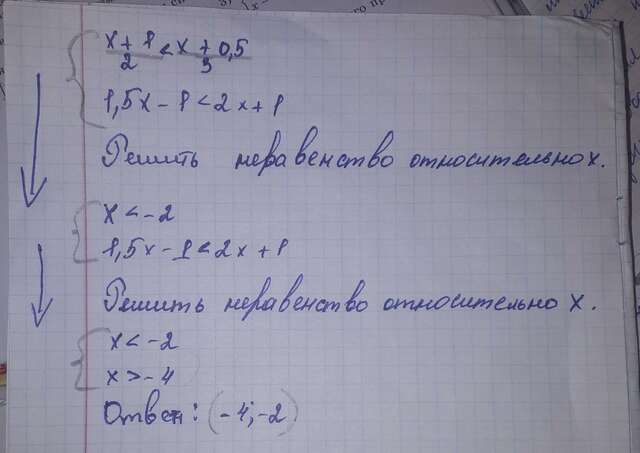 x + 1 / 2 < x + 0,5 / 3
1,5x - 1 < 2x + 1
Решить неравенство относительно x.
x < -2
1,5x - 1 < 2x + 1
Решить неравенство относительно x.
x < -2
x > -4
Ответ: (-4; -2)